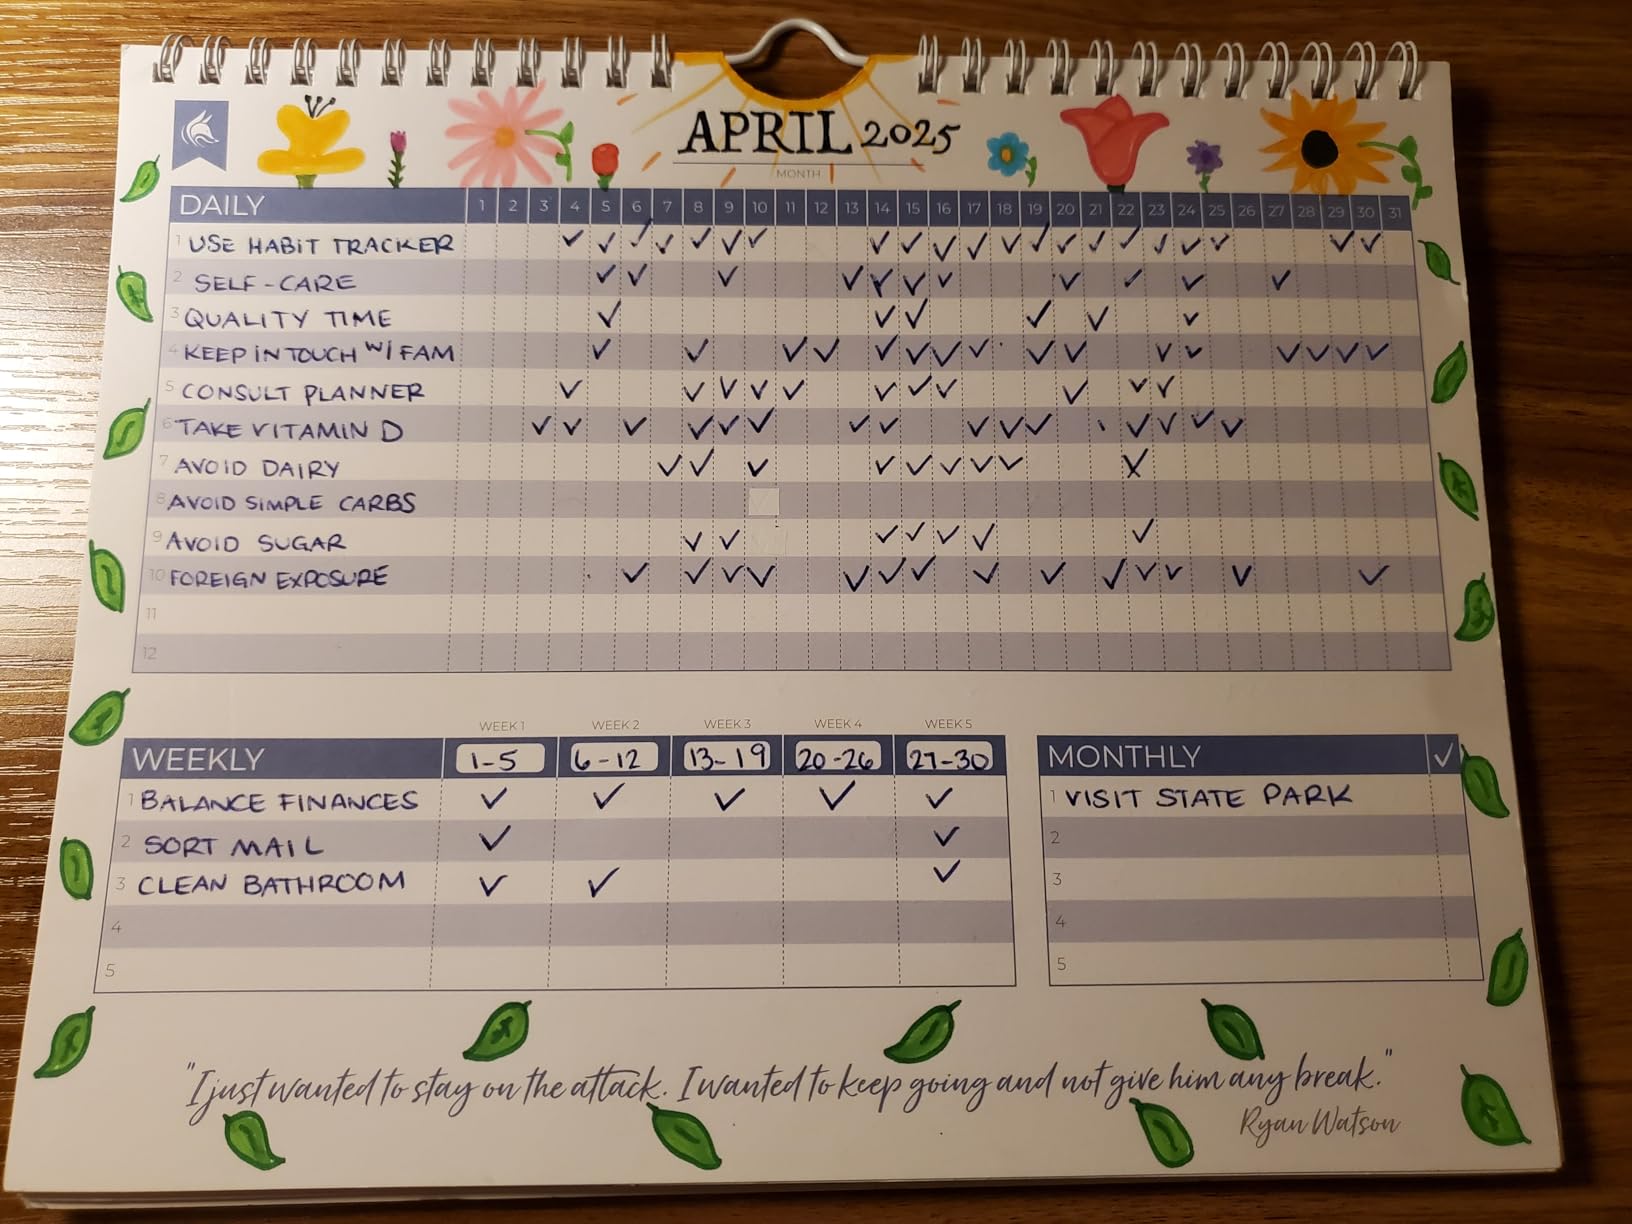 APRIL 2025
MONTH
DAILY 1 2 3 4 5 6 7 8 9 10 11 12 13 14 15 16 17 18 19 20 21 22 23 24 25 26 27 28 29 30 31
1 USE HABIT TRACKER ✓ ✓ ✓ ✓ ✓ ✓ ✓ ✓ ✓ ✓ ✓ ✓ ✓ ✓ ✓ ✓ ✓ ✓ ✓ ✓ ✓
2 SELF-CARE ✓ ✓ ✓ ✓ ✓ ✓ ✓ ✓ ✓ ✓ ✓
3 QUALITY TIME ✓ ✓ ✓ ✓ ✓ ✓
4 KEEP IN TOUCH W/ FAM ✓ ✓ ✓ ✓ ✓ ✓ ✓ ✓ ✓ ✓ ✓ ✓ ✓ ✓ ✓ ✓
5 CONSULT PLANNER ✓ ✓ ✓ ✓ ✓ ✓ ✓ ✓ ✓ ✓ ✓
6 TAKE VITAMIN D ✓ ✓ ✓ ✓ ✓ ✓ ✓ ✓ ✓ ✓ ✓ ✓ ✓ ✓ ✓
7 AVOID DAIRY ✓ ✓ ✓ ✓ ✓ ✓ ✓ ✓ X
8 AVOID SIMPLE CARBS
9 AVOID SUGAR ✓ ✓ ✓ ✓ ✓ ✓ ✓
10 FOREIGN EXPOSURE ✓ ✓ ✓ ✓ ✓ ✓ ✓ ✓ ✓ ✓ ✓ ✓ ✓ ✓
11
12
WEEK 1 WEEK 2 WEEK 3 WEEK 4 WEEK 5
WEEKLY 1-5 6-12 13-19 20-26 27-30
1 BALANCE FINANCES ✓ ✓ ✓ ✓ ✓
2 SORT MAIL ✓ ✓
3 CLEAN BATHROOM ✓ ✓ ✓
4
5
MONTHLY ✓
1 VISIT STATE PARK
2
3
4
5
"I just wanted to stay on the attack. I wanted to keep going and not give him any break."
Ryan Watson